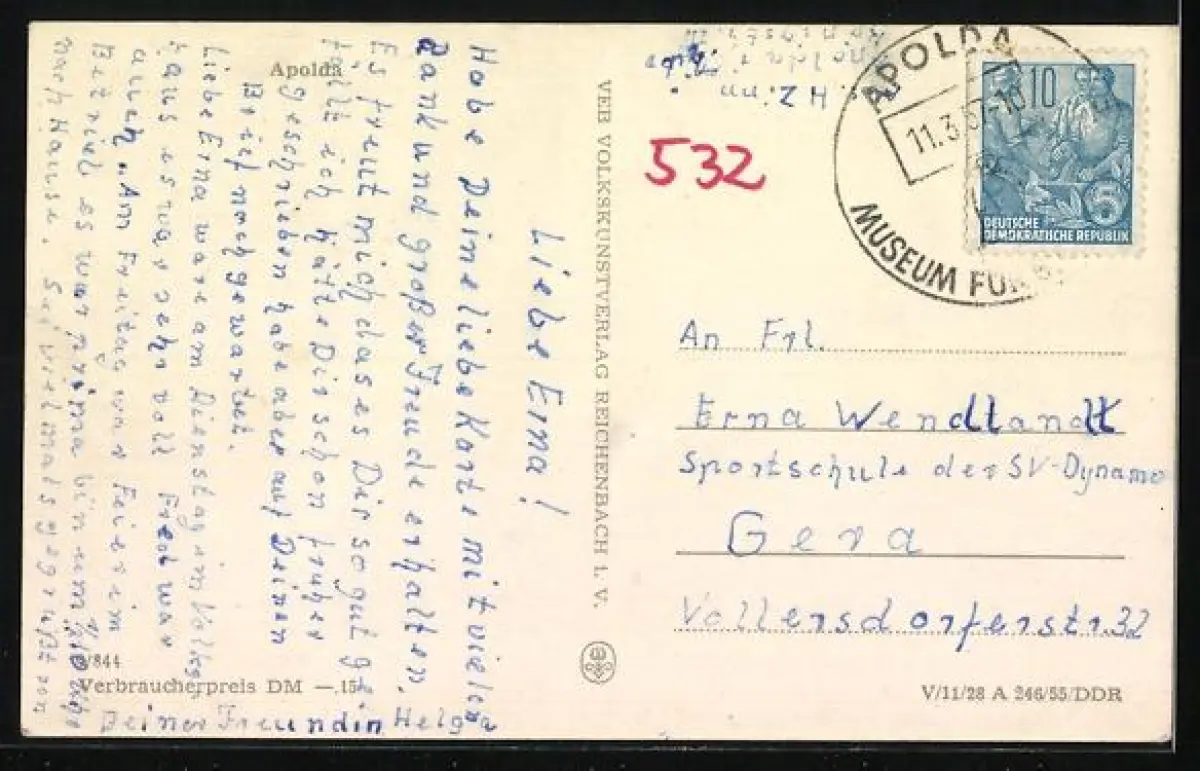 Apolda
Liebe Erna!
Habe Deine liebe Karte mit vielen
Dank und großer Freude erhalten.
Es freut mich das es Dir so gut ge
fällt ich hätte Dir schon früher
geschrieben habe aber auf Deinen
Brief noch gewartet.
Liebe Erna war am Dienstag im Volks
haus es war sehr voll Fred war
auch. Am Freitag war Feier im
Betrieb es war prima bin um
nach Hause. Sei vielmals gegrüßt von
Deiner Freundin Helga
/844
Verbraucherpreis DM —.15
VEB VOLKSKUNSTVERLAG REICHENBACH I. V.
H. Zinn
532
APOLDA
11.3.57-10
MUSEUM FÜR
10
5
DEUTSCHE
DEMOKRATISCHE REPUBLIK
An Frl.
Erna Wendlandt
Sportschule der SV-Dynamo
Gera
Vollersdorferstr. 32
V/11/28 A 246/55/DDR